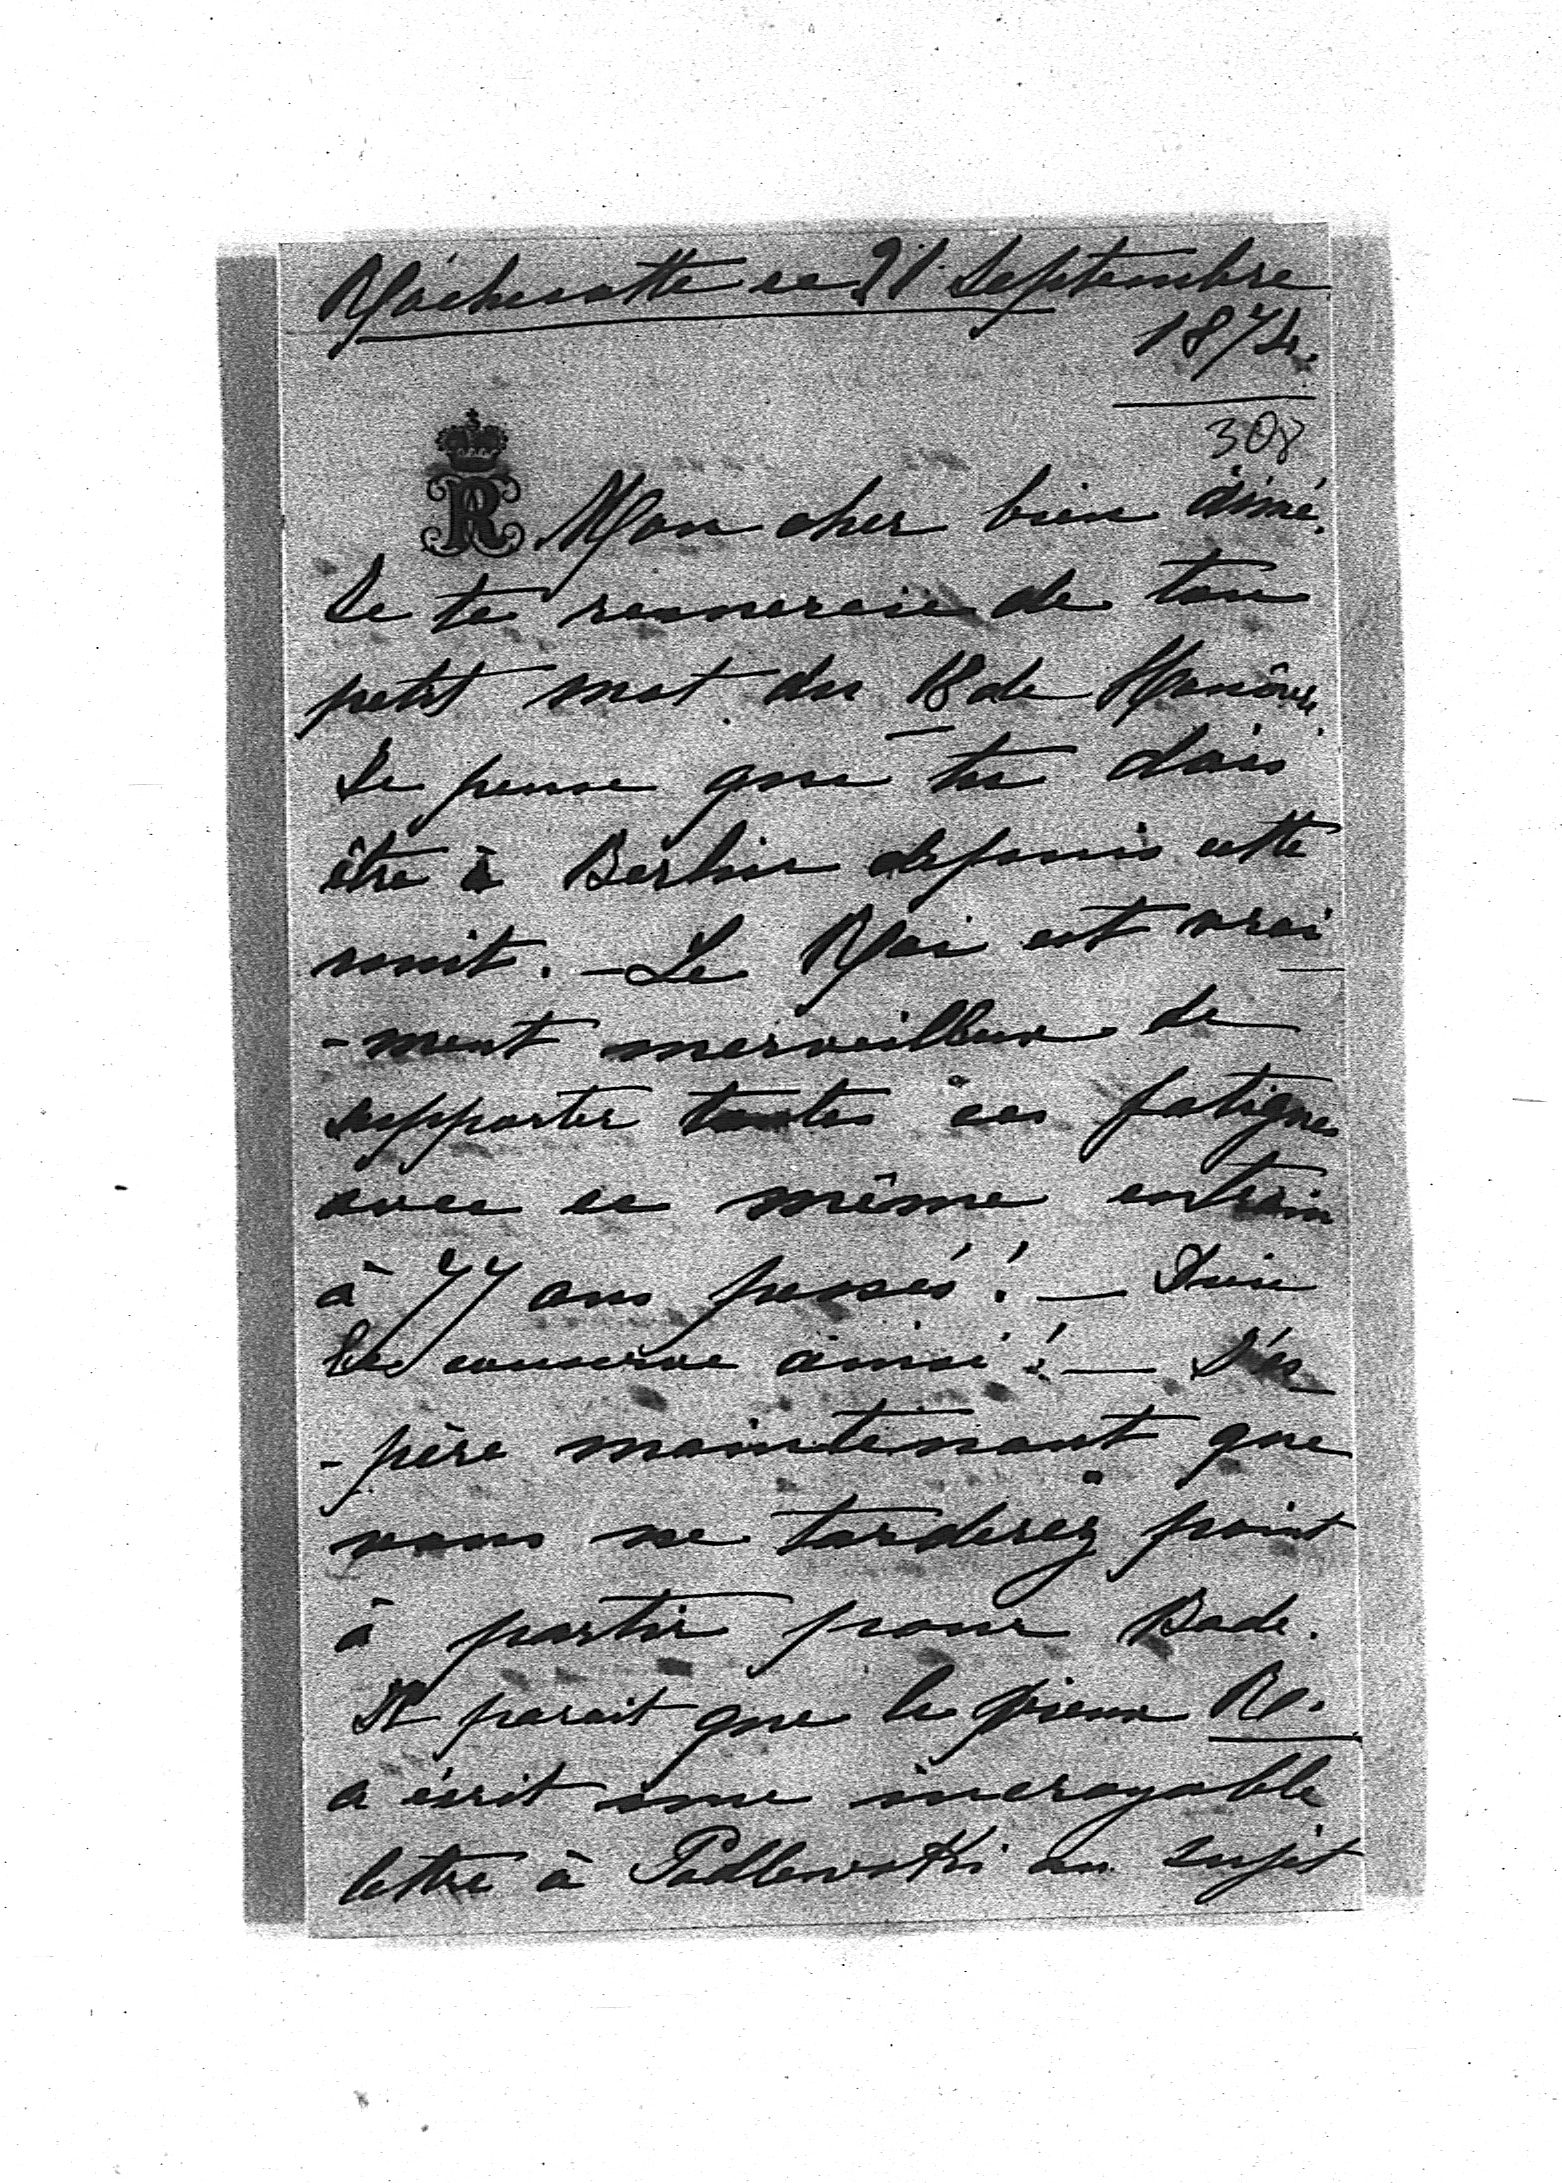 Rochecotte ce 21 Septembre
1874.
308
R Mon cher bien aimé.
Je te remercie de ton
petit mot du 18 de Hanôvre.
Je pense que tu dois
être à Berlin depuis cette
nuit. – Le Roi est vrai
-ment merveilleux de
supporter toutes ces fatigues
avec ce même entrain
à 77 ans passés! – Dieu
le conserve ainsi! – J'es
-père maintenant que
vous ne tarderez point
à partir pour Bade.
Il parait que le vieux R.
a écrit une incroyable
lettre à Podlewski au sujet